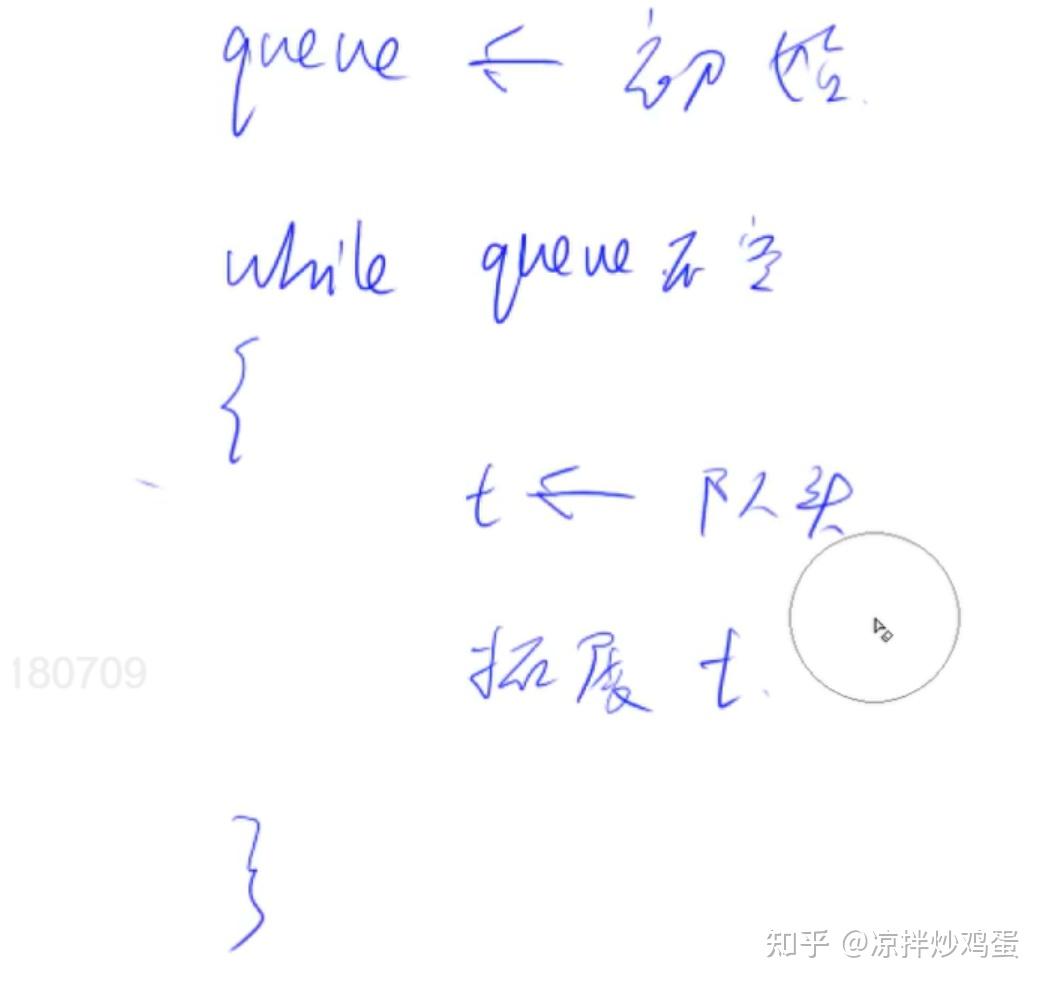 queue ← 初始
while queue不空
{
t ← 队头
180709
拓展 t
}
知乎 @凉拌炒鸡蛋